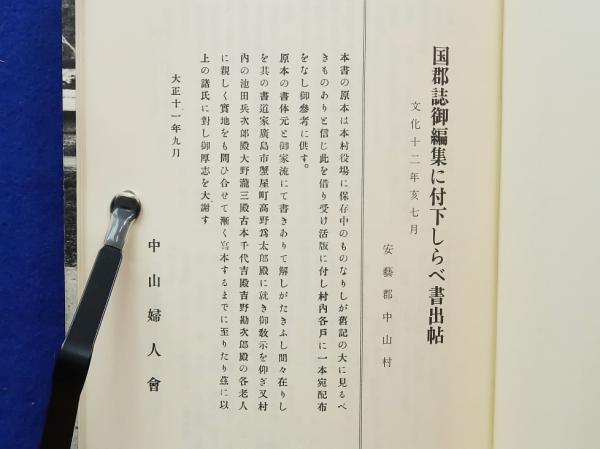 国郡誌御編集に付下しらべ書出帖
文化十二年亥七月
安藝郡中山村
本書の原本は本村役場に保存中のものなりしが舊記の大に見るべ
きものありと信じ此を借り受け活版に付し村内各戸に一本宛配布
をなし御參考に供す。
原本の書体元と御家流にて書きありて解しがたきふし間々在りし
を其の書道家廣島市蟹屋町高野爲太郎殿に就き御敎示を仰ぎ又村
內の池田兵次郎殿大野瀧三殿古本千代吉殿吉野勘次郎殿の各老人
に親しく實地をも問ひ合せて漸く寫本するまでに至りたり茲に以
上の諸氏に對し御厚志を大謝す
大正十一年九月
中山婦人會